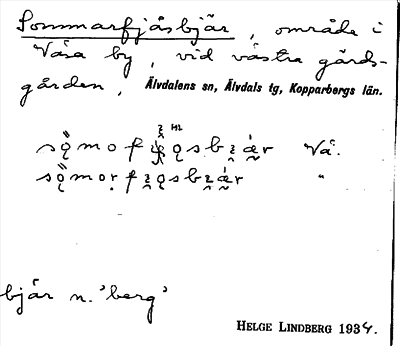 Sommarfjåsbjär, område i
Våsa by, vid västra gårds-
gården, Älvdalens sn, Älvdals tg, Kopparbergs län.
Vå.
"
bjär n. 'berg'
HELGE LINDBERG 1934.